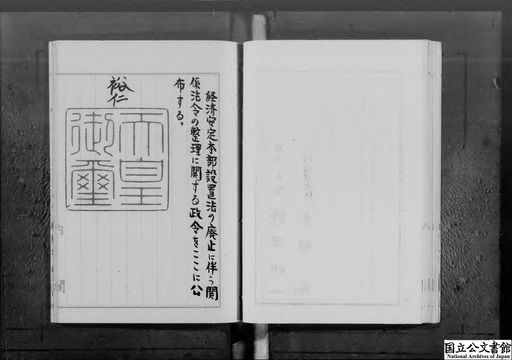 経済安定本部設置法の廃止に伴う関
係法令の整理に関する政令をここに公
布する。
裕仁
天皇
御璽
国立公文書館
National Archives of Japan